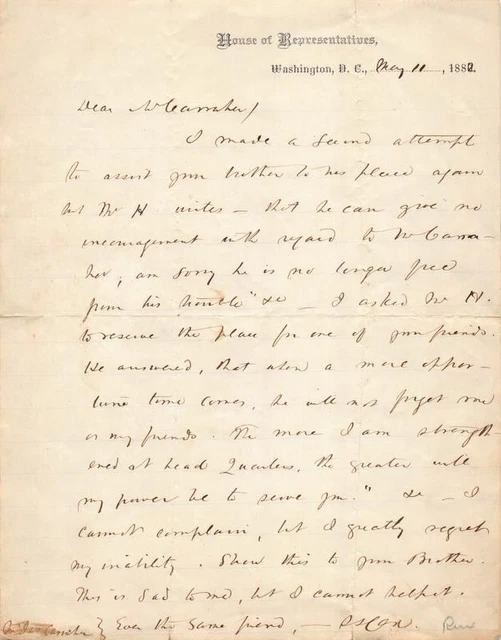 House of Representatives,
Washington, D. C., May 11, 1882.
Dear McCarraher,
I made a second attempt
to assist your brother to his place again
but Mr H. writes — that he can give no
encouragement with regard to McCarra-
her; am sorry he is no longer free
from his trouble" &c — I asked Mr H.
to reserve the place for one of your friends.
He answered, that when a more oppor-
tune time comes, he will not forget me
or my friends. The more I am strength
ened at Head Quarters, the greater will
my power be to serve you." &c — I
cannot complain, but I greatly regret
my inability. Show this to your Brother.
This is sad to me, but I cannot help it.
} Ever the same friend, —